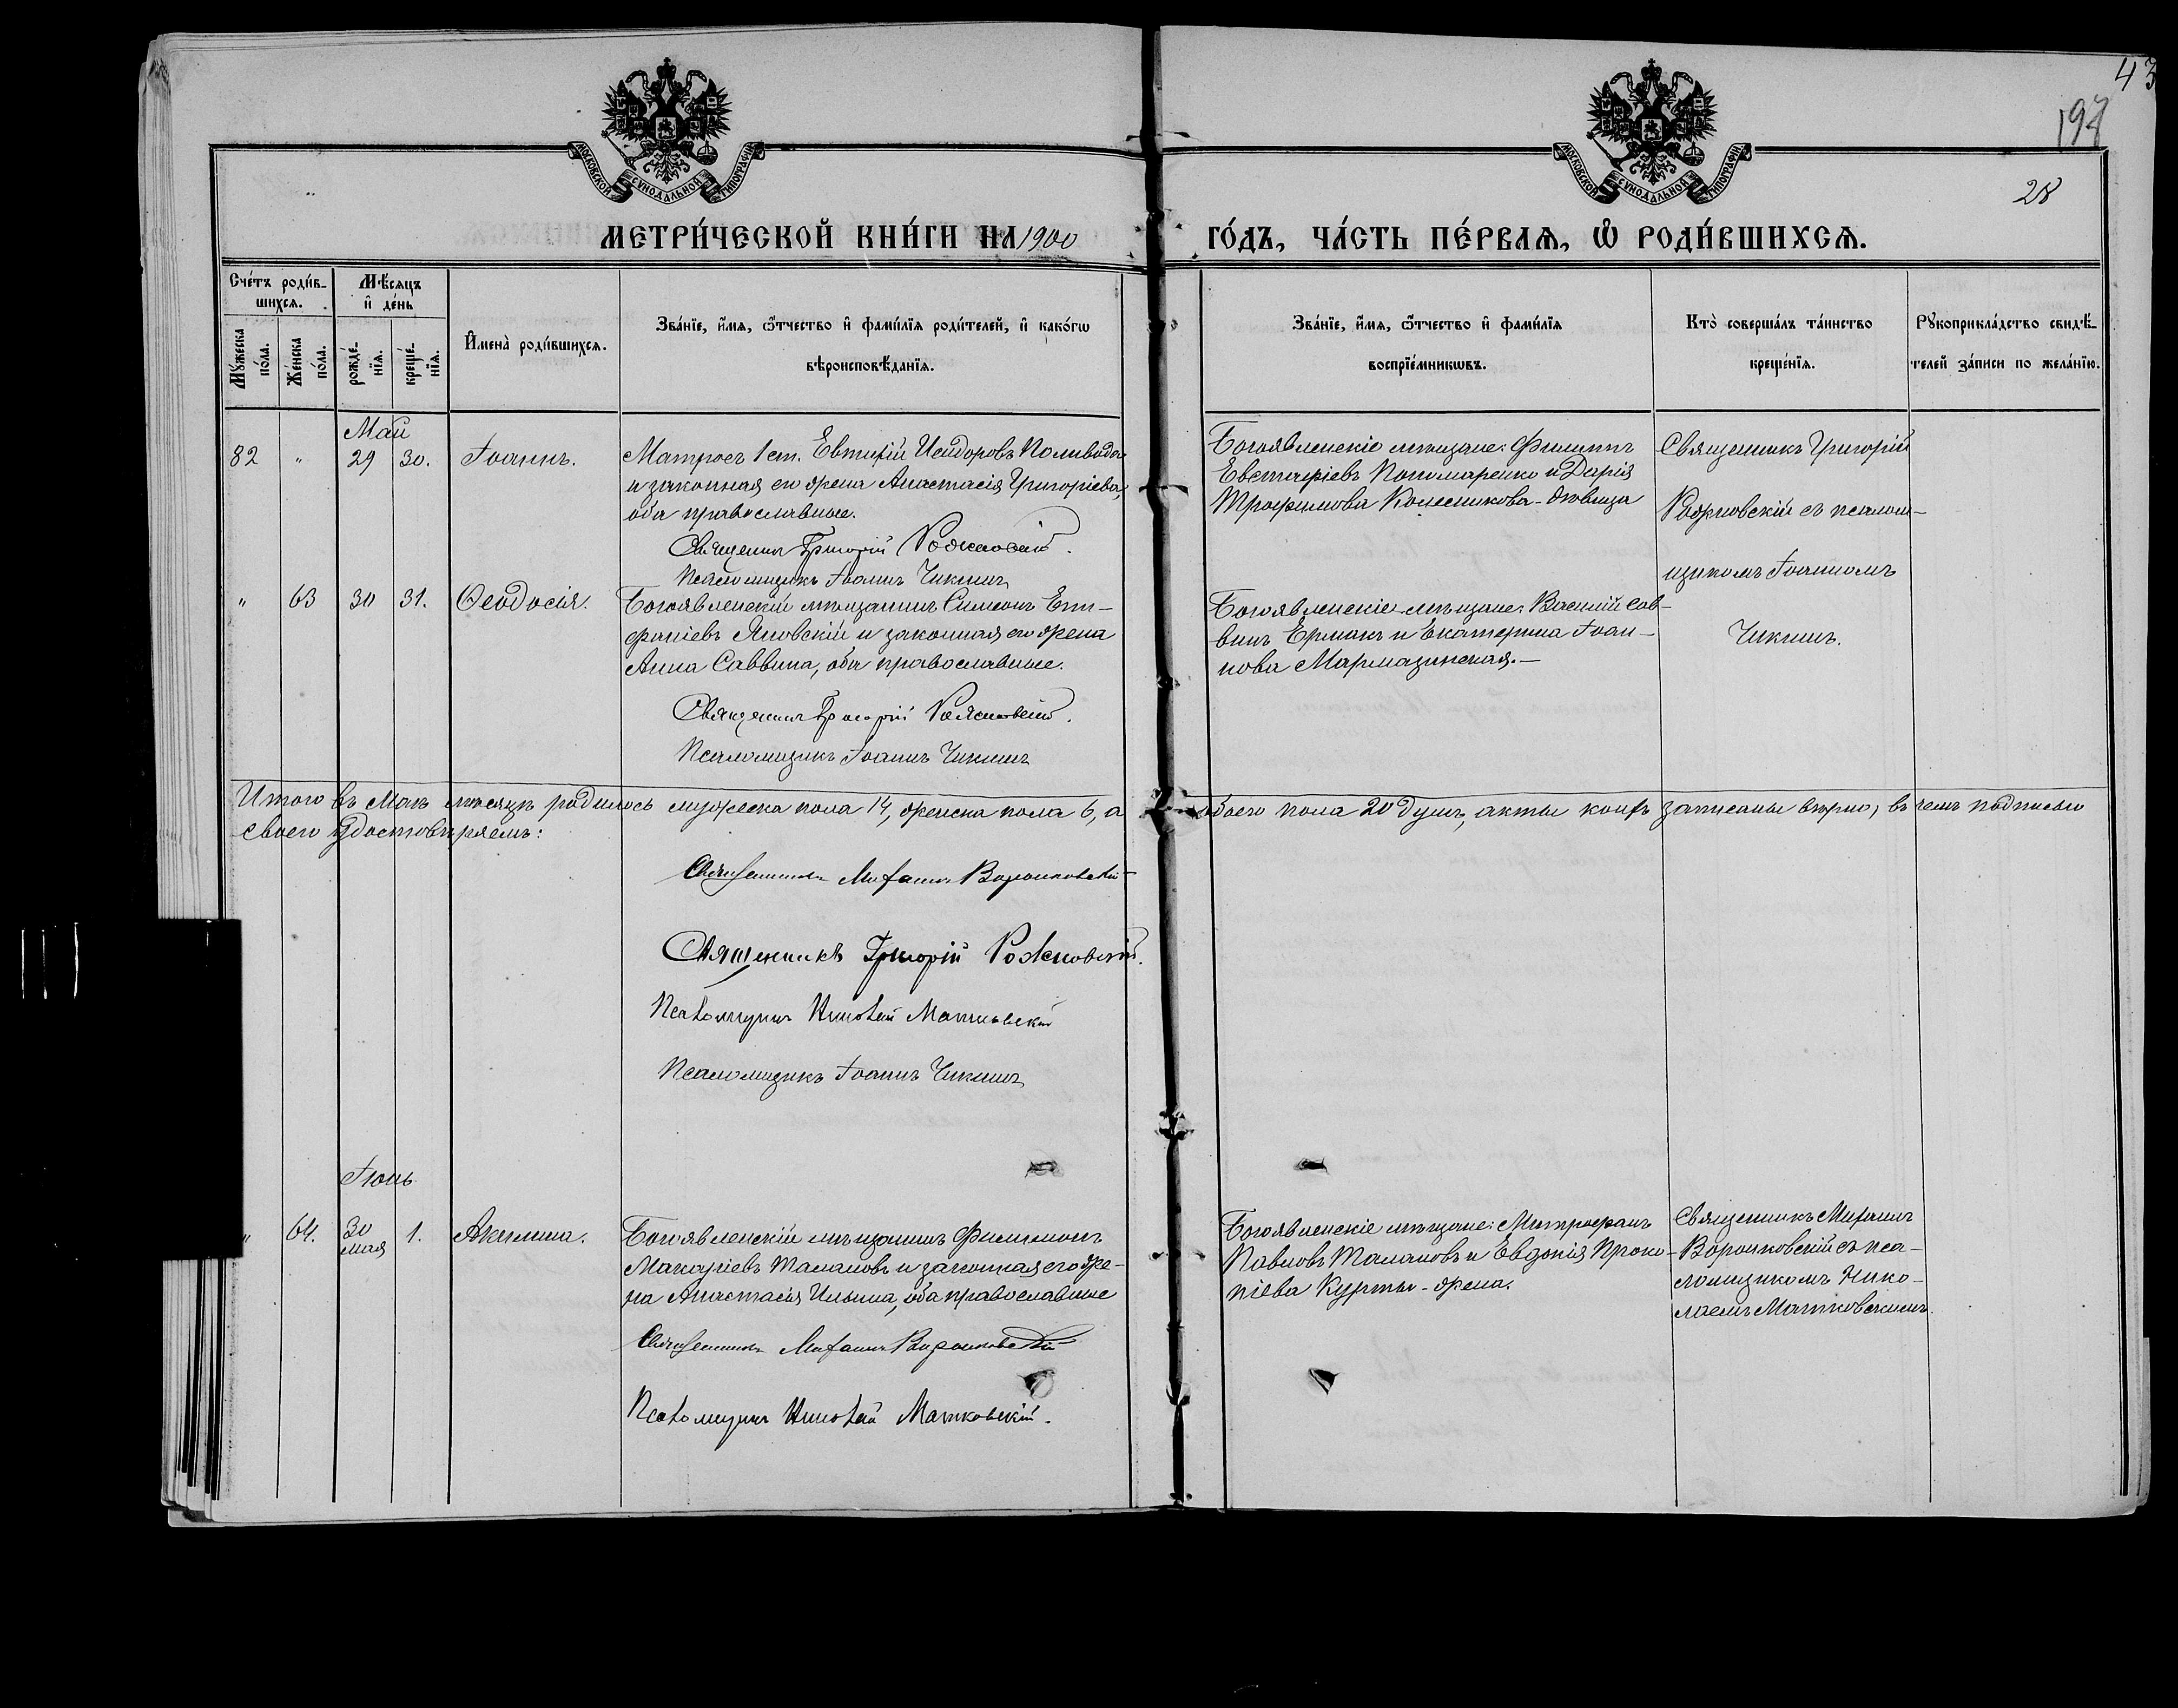 43
197
28
МОСКОВСКОЙ СѴНОДАЛЬНОЙ ТИПОГРАФІИ
МОСКОВСКОЙ СѴНОДАЛЬНОЙ ТИПОГРАФІИ
МЕТРИ́ЧЕСКОЙ КНИ́ГИ НА 1900 ГО́ДЪ, ЧА́СТЬ ПЕ́РВАѦ, Ѡ РОДИ́ВШИХСѦ.
Сче́тъ роди́в-
шихсѧ.
Мѣ́сѧцъ
и҆ де́нь
Мꙋ́жеска
по́ла.
Же́нска
по́ла.
рожде́-
нїѧ.
креще́-
нїѧ.
И҆мена̀ роди́вшихсѧ.
Зва́нїе, и҆́мѧ, ѻ҆́тчество и҆ фами́лїѧ роди́телей, и҆ како́гѡ
вѣроисповѣ́данїѧ.
Зва́нїе, и҆́мѧ, ѻ҆́тчество и҆ фами́лїѧ
воспрїе́мникѡвъ.
Кто̀ соверша́лъ та́инство
креще́нїѧ.
Рꙋкоприкла́дство свидѣ́-
телей за́писи по жела́нїю.
Май
82 " 29 30. Іоаннъ.
Матросъ 1 ст. Евтихій Исидоровъ Поливода
и законная его жена Анастасія Григоріева,
оба православные.
Священникъ Григорій Рожновскій.
Псаломщикъ Іоаннъ Чикинъ
Богоявленскіе мѣщане: Филиппъ
Евстафіевъ Пономаренко и Дарія
Трофимова Колесникова - дѣвица
Священникъ Григорій
Рожновскій съ псалом-
щикомъ Іоанномъ
Чикинъ.
" 63 30 31. Ѳеодосія.
Богоявленскій мѣщанинъ Симеонъ Епи-
фаніевъ Яновскій и законная его жена
Анна Саввина, оба православные.
Священникъ Григорій Рожновскій.
Псаломщикъ Іоаннъ Чикинъ
Богоявленскіе мѣщане: Василій Сав-
винъ Ермакъ и Екатерина Іоан-
нова Мармазинская. —
Итого въ Маѣ мѣсяцѣ родилось мужеска пола 14, женска пола 6, а обоего пола 20 душъ, акты коихъ записаны вѣрно, въ чемъ подписью
своею удостовѣряемъ:
Священникъ Михаилъ Воронковскій
Священникъ Григорій Рожновскій.
Псаломщикъ Николай Матковскій
Псаломщикъ Іоаннъ Чикинъ
Іюнь
" 64. 30 мая 1. Акилина.
Богоявленскій мѣщанинъ Филимонъ
Макаріевъ Талановъ и законная его же-
на Анастасія Ильина, оба православные
Священникъ Михаилъ Воронковскій
Псаломщикъ Николай Матковскій.
Богоявленскіе мѣщане: Митрофанъ
Павловъ Талановъ и Евдокія Проко-
піева Курты - жена.
Священникъ Михаилъ
Воронковскій съ пса-
ломщикомъ Нико-
лаемъ Матковскимъ.